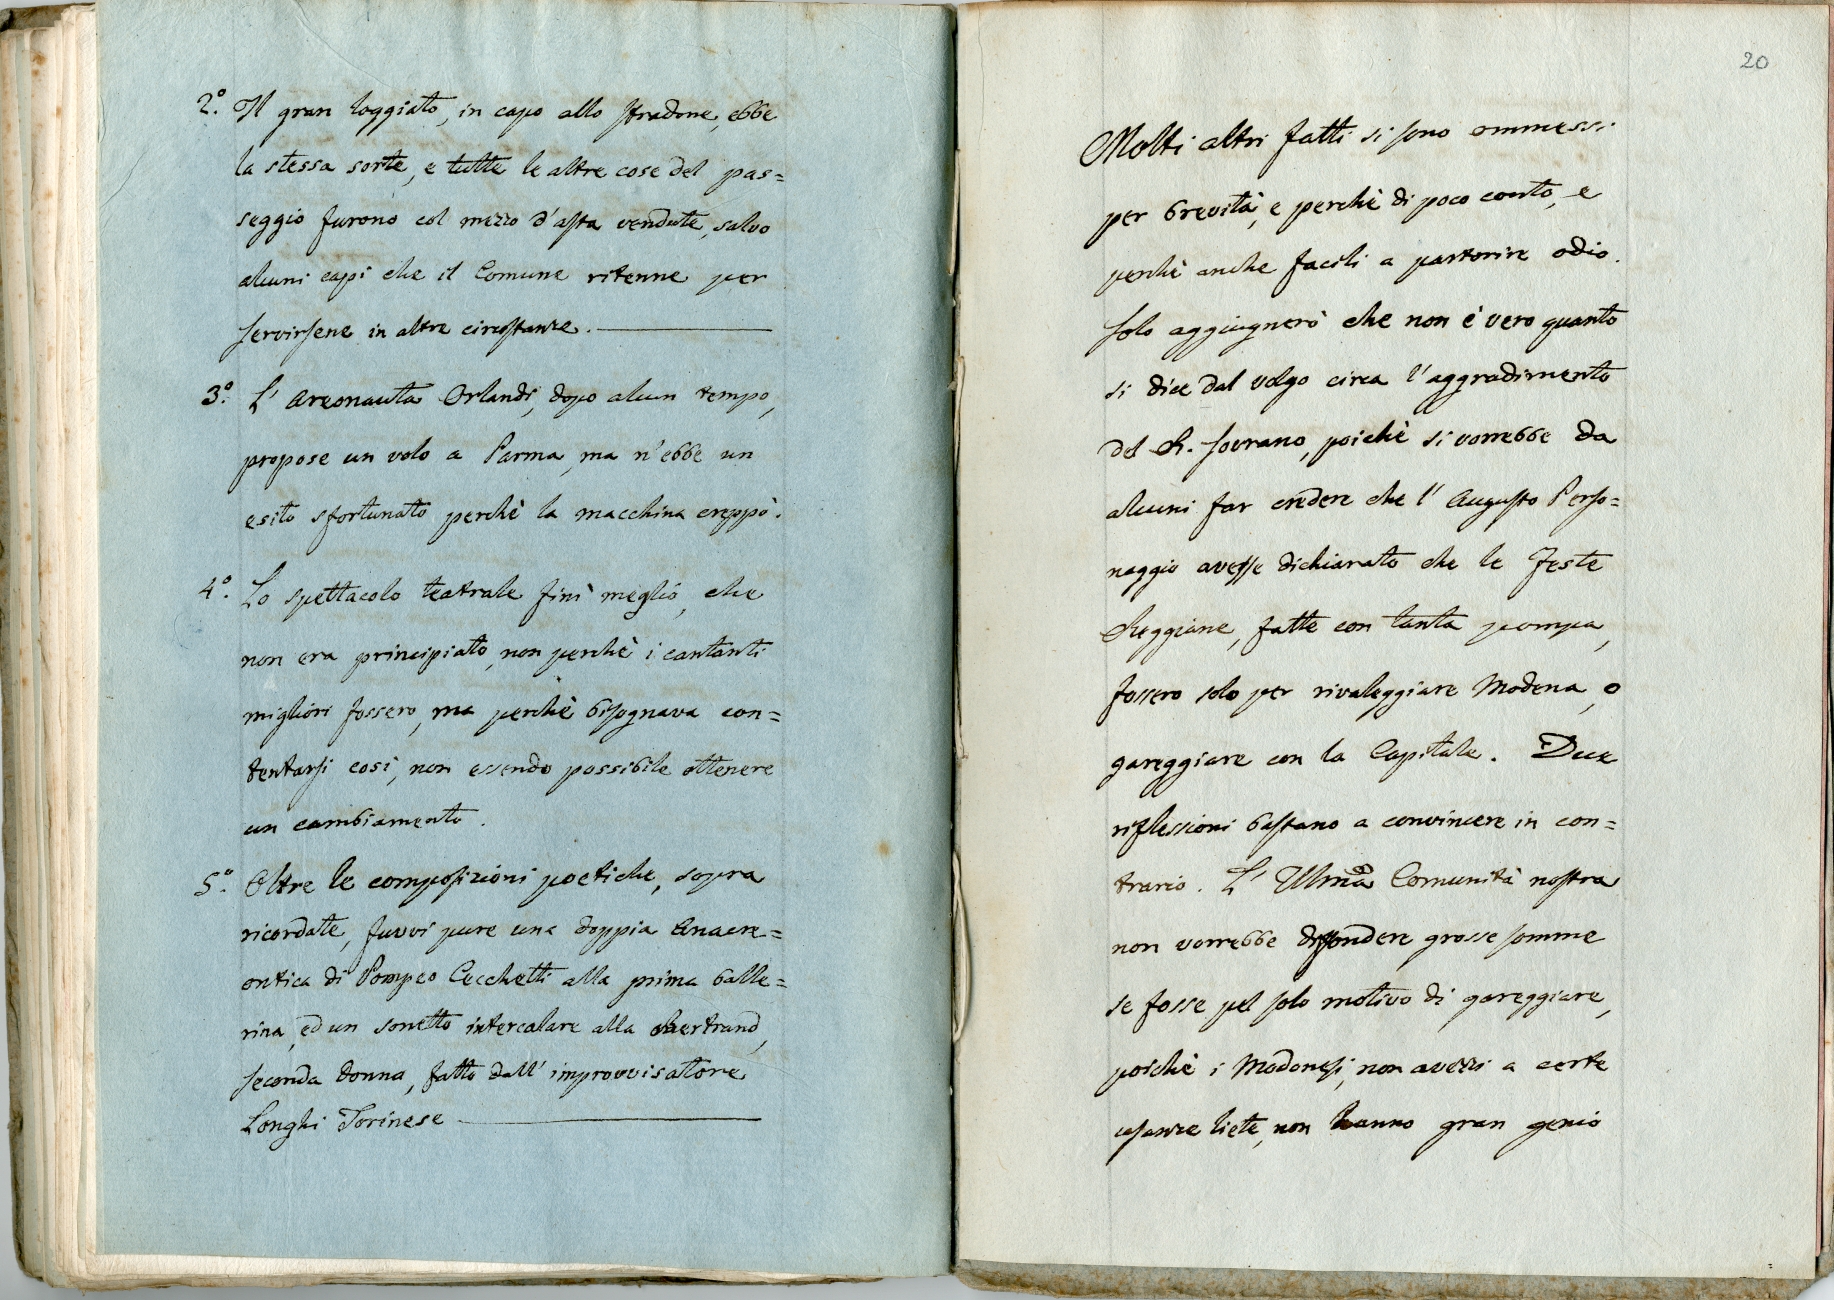 2.° Il gran loggiato, in capo allo stradone, ebbe
la stessa sorte, e tutte le altre cose del pas=
seggio furono col mezzo d'asta vendute, salvo
alcuni capi che il Comune ritenne per
servirsene in altre circostanze.
3.° L' Areonauta Orlandi, dopo alcun tempo,
propose un volo a Parma, ma n'ebbe un
esito sfortunato perchè la macchina creppò.
4.° Lo spettacolo teatrale finì meglio, che
non era principiato, non perchè i cantanti
migliori fossero, ma perchè bisognava con=
tentarsi così, non essendo possibile ottenere
un cambiamento.
5.° Oltre le composizioni poetiche, sopra
ricordate, fuvvi pure una doppia Anacre=
ontica di Pompeo Cecchetti alla prima balle=
rina, ed un sonetto intercalare alla Bertrand,
seconda donna, fatto dall' improvvisatore
Longhi Torinese
20
Molti altri fatti si sono ommessi
per brevità, e perchè di poco conto, e
perchè anche facili a partorire odio.
Solo aggiugnerò che non è vero quanto
si dice dal volgo circa l'aggradimento
del R. Sovrano, poichè si vorrebbe da
alcuni far credere che l' Augusto Perso=
naggio avesse dichiarato che le Feste
Reggiane, fatte con tanta pompa,
fossero solo per rivaleggiare Modena, o
gareggiare con la Capitale. Due
riflessioni bastano a convincere in con=
trario. L' Illma Comunità nostra
non vorrebbe disfondere grosse somme
se fosse pel solo motivo di gareggiare,
poichè i Modonesi, non avezzi a certe
usanze liete, non hanno gran genio